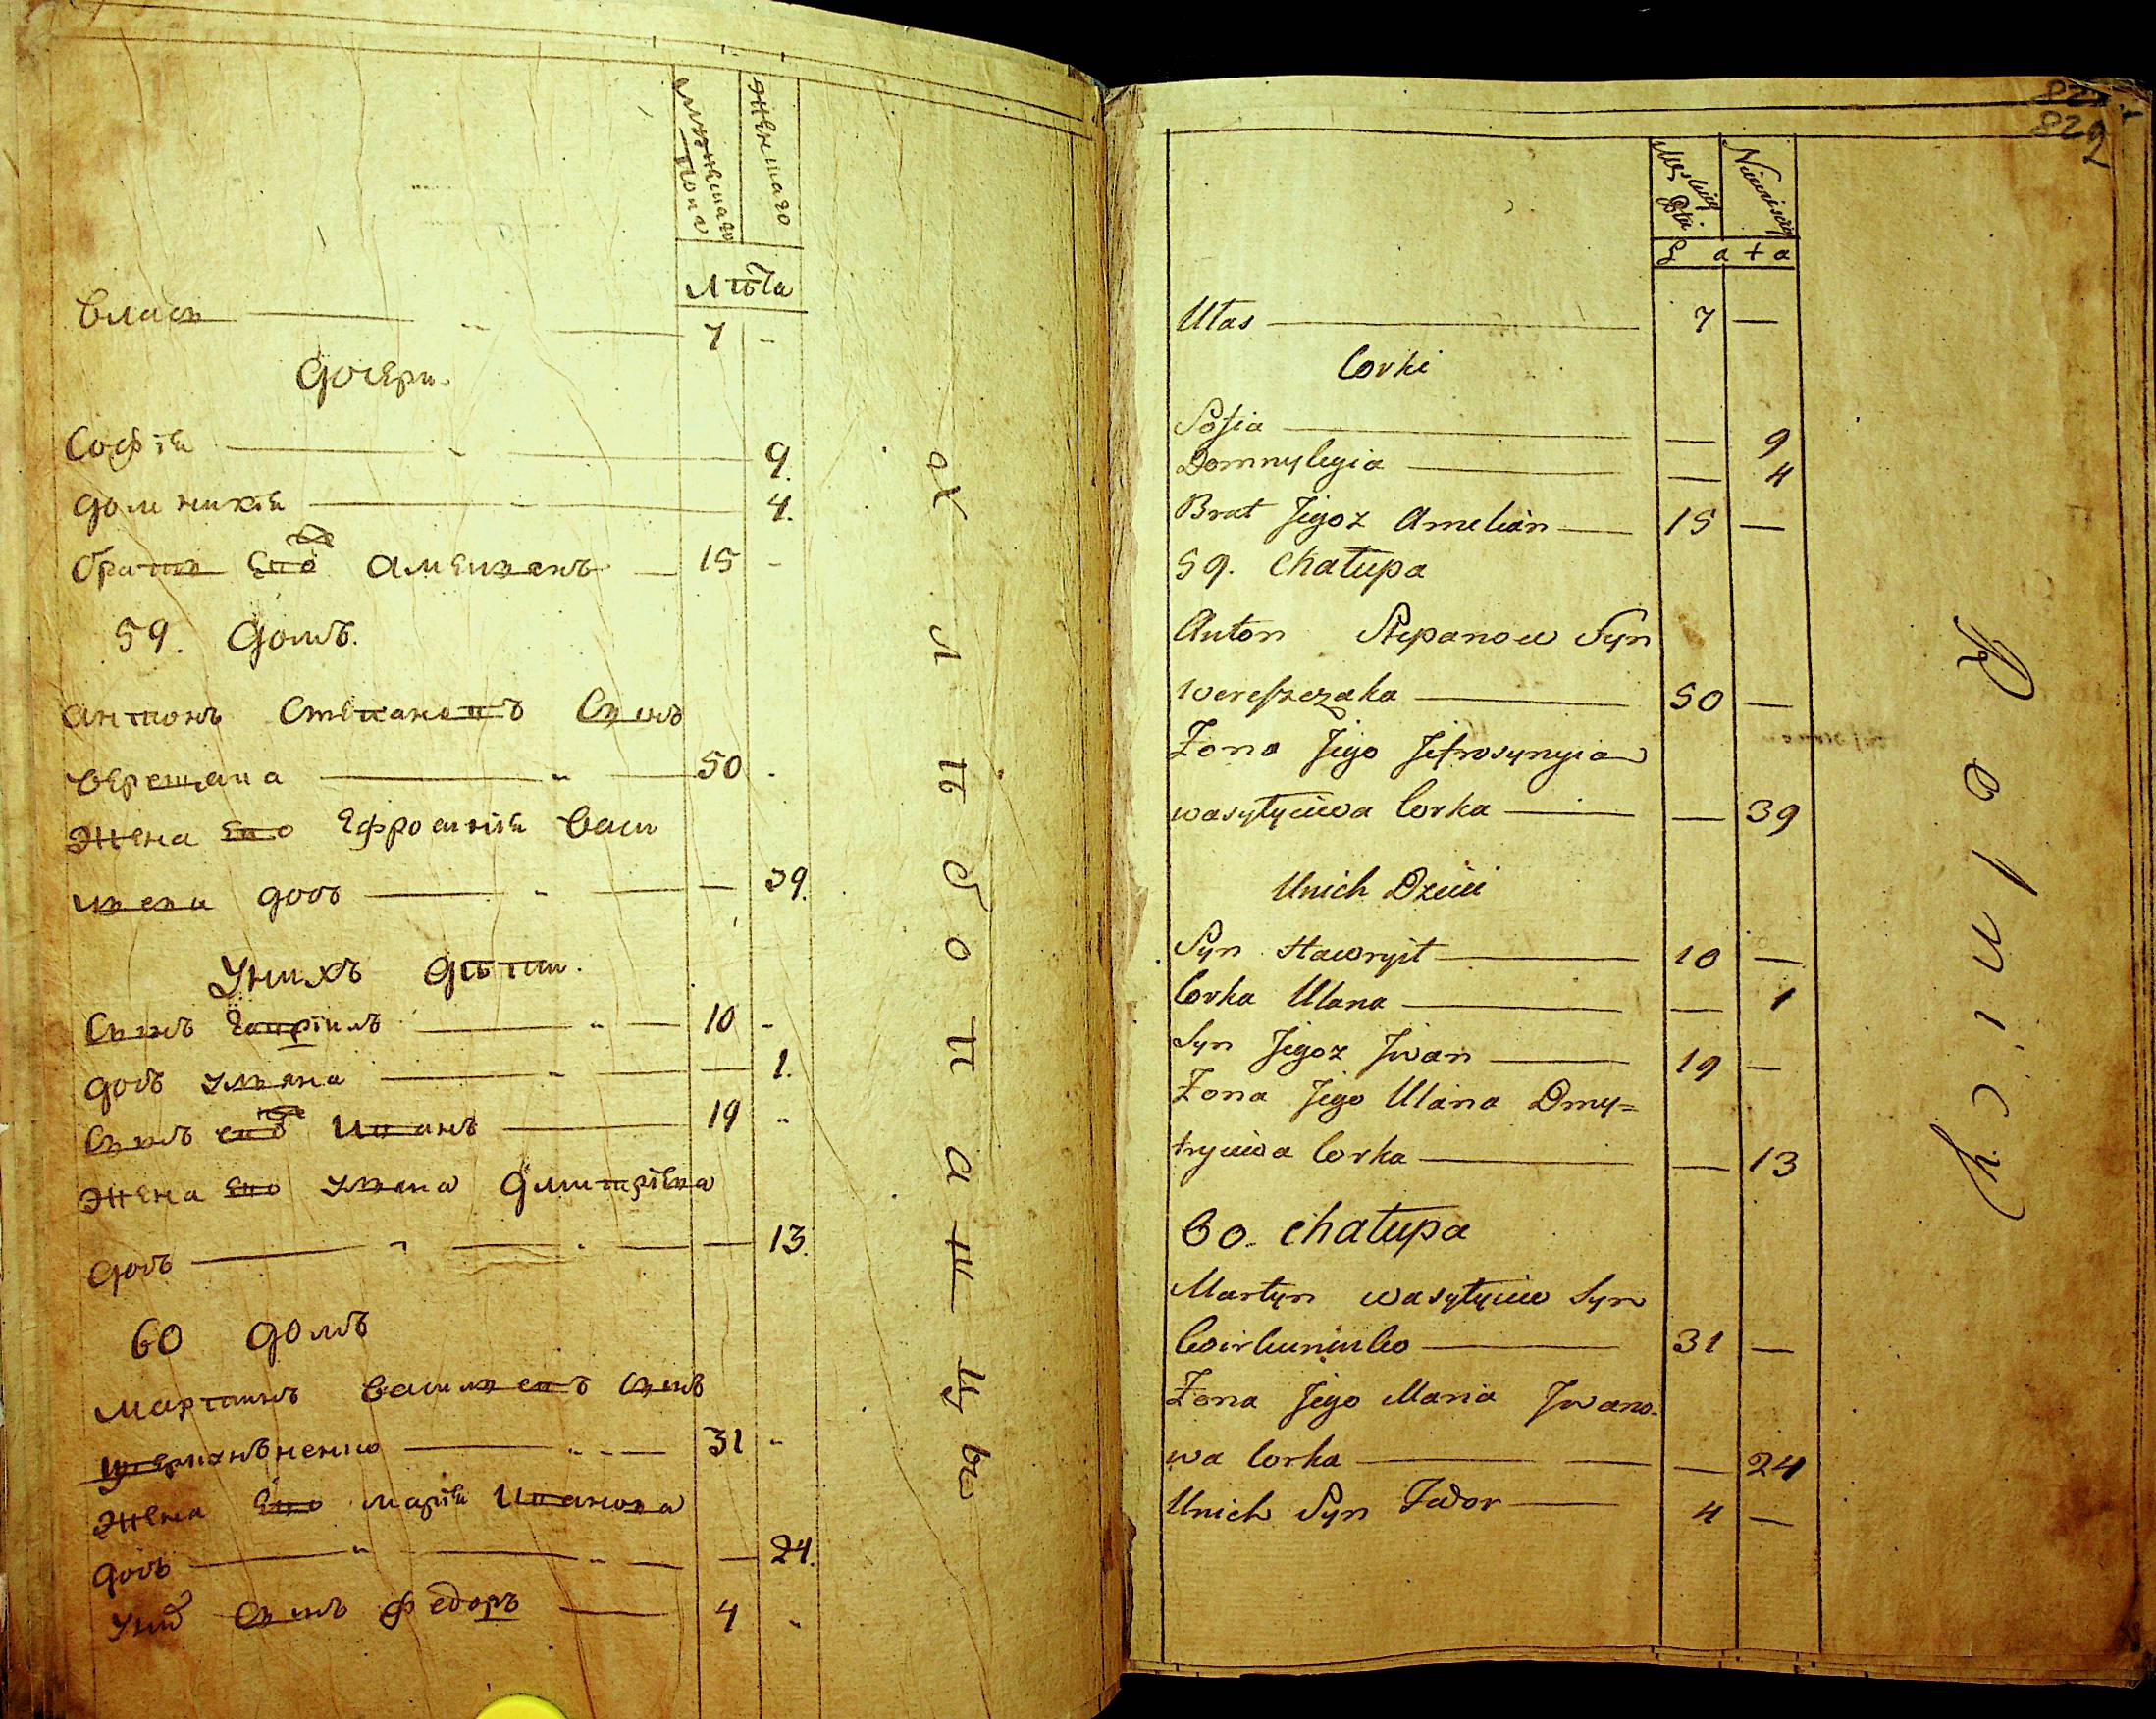 мужескаго пола
женскаго
лѣта
Власъ 7 -
Дочери.
Софія 9.
Домникія 4.
братъ его Амельянъ 15 -
59. Домъ.
Антонъ Степановъ Сынъ
Верещака 50 -
Жена его Ефросинія Васи
льева дочь — 39.
У нихъ дѣти.
Сынъ Гавріилъ 10 -
дочь Ульяна — 1.
Сынъ его Иванъ 19 -
Жена его Ульяна Дмитріева
дочь — 13.
60 домъ
Мартинъ Васильевъ Сынъ
31 -
Жена его Марія Иванова
дочь — 24.
У них Сынъ Федоръ 4 -
хлѣбопажцы
822
Męskiej Płci
Niewisciej
Lata
Ułas 7 —
Corki
Sofia — 9
Domnykyia — 4
Brat Jegoz Amelian 15 —
59. Chałupa
Anton Stepanow Syn
Wereszczaka 50 —
Żona Jego Jefrosynyia
Wasylyiewa Corka — 39
Unich Dzieci
Syn Hawryił 10 —
Corka Ulana — 1
Syn Jegoz Jwan 19 —
Żona Jego Ulana Dmy=
tryiewa Corka — 13
60. Chałupa
Martyn Wasylyiew Syn
31 —
Żona Jego Maria Jwano-
wa Corka — 24
Unich Syn Fedor 4 —
Rolnicy